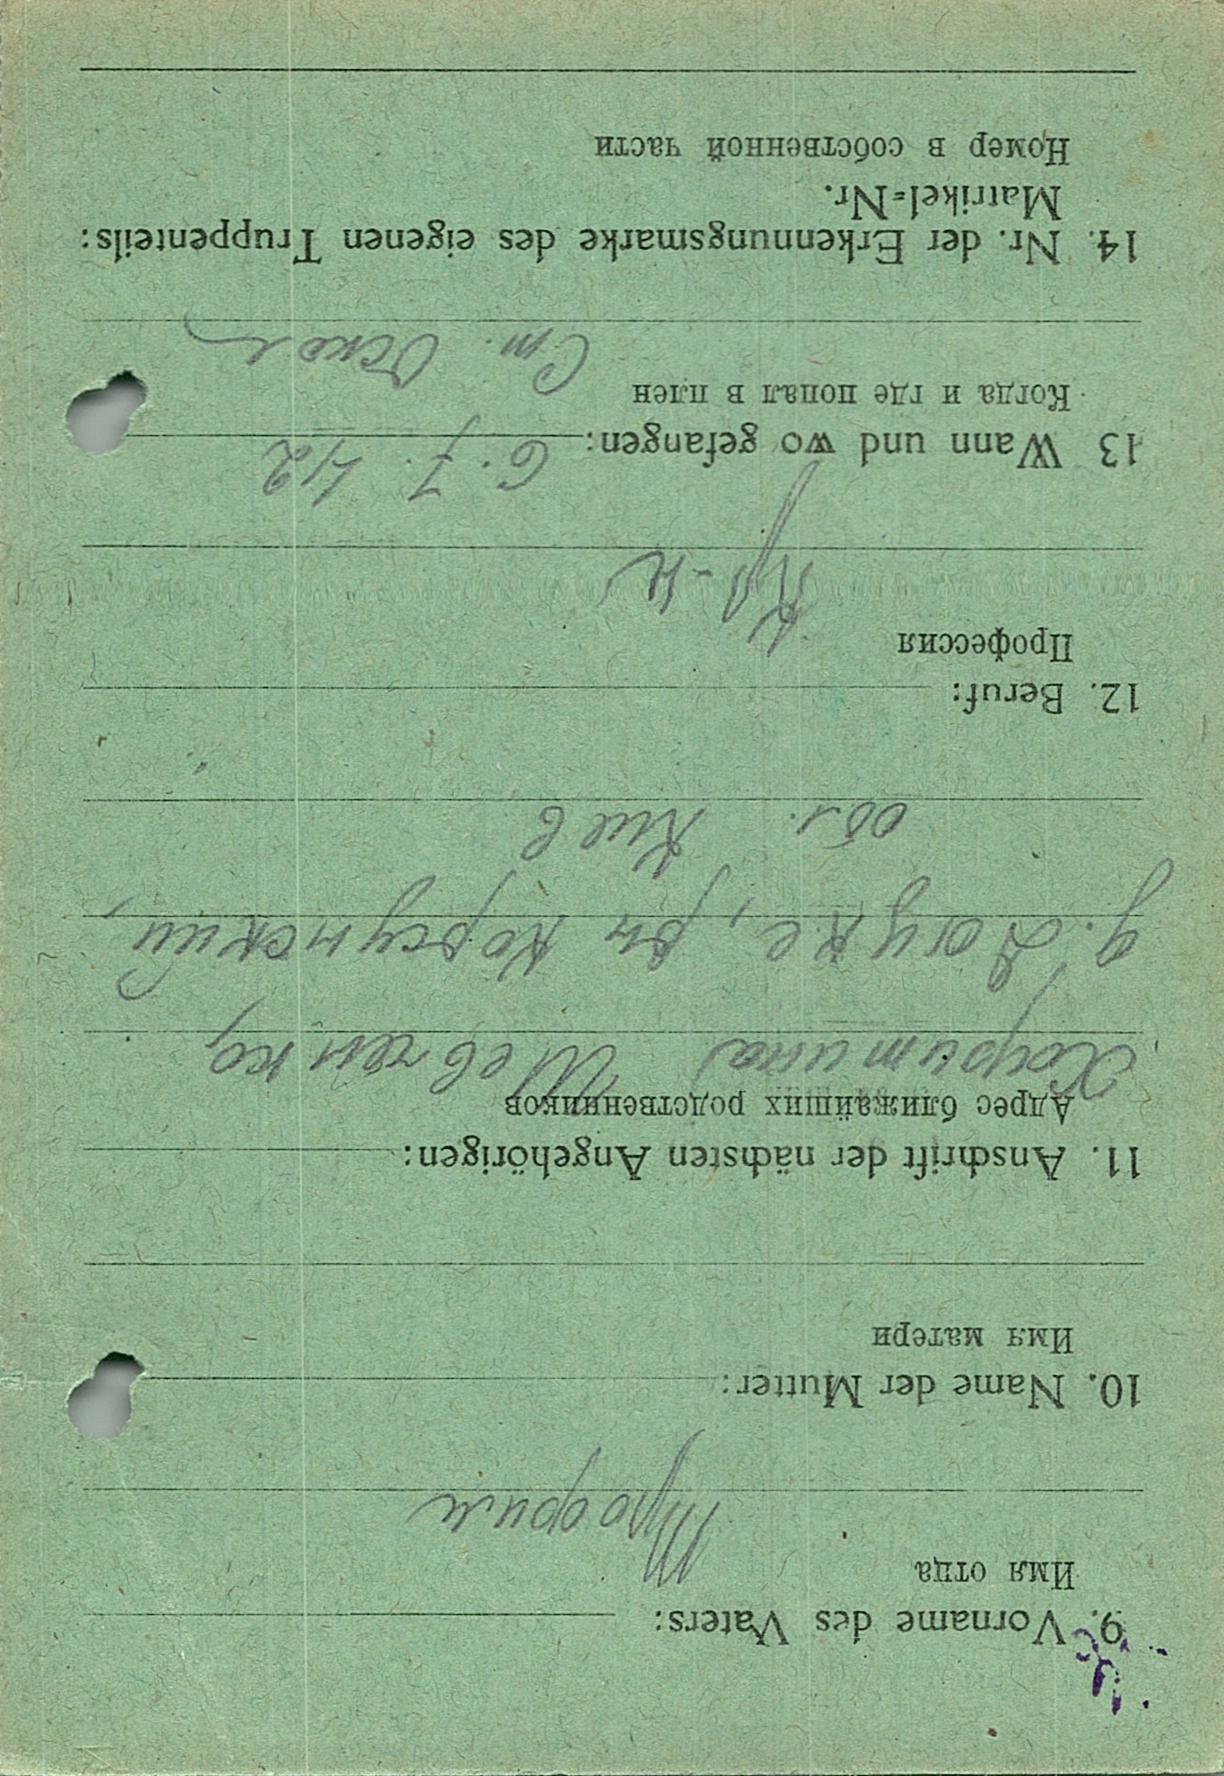 9. Vorname des Vaters:
Имя отца
Трофим
10. Name der Mutter:
Имя матери
11. Anschrift der nächsten Angehörigen:
Адрес ближайших родственников
Харитина Шевченко
д. рн Корсунский,
обл. Киев
12. Beruf:
Профессия
Кр-н
13 Wann und wo gefangen: 6.7.42
Когда и где попал в плен
Ст. Оскол
14. Nr. der Erkennungsmarke des eigenen Truppenteils:
Matrikel=Nr.
Номер в собственной части